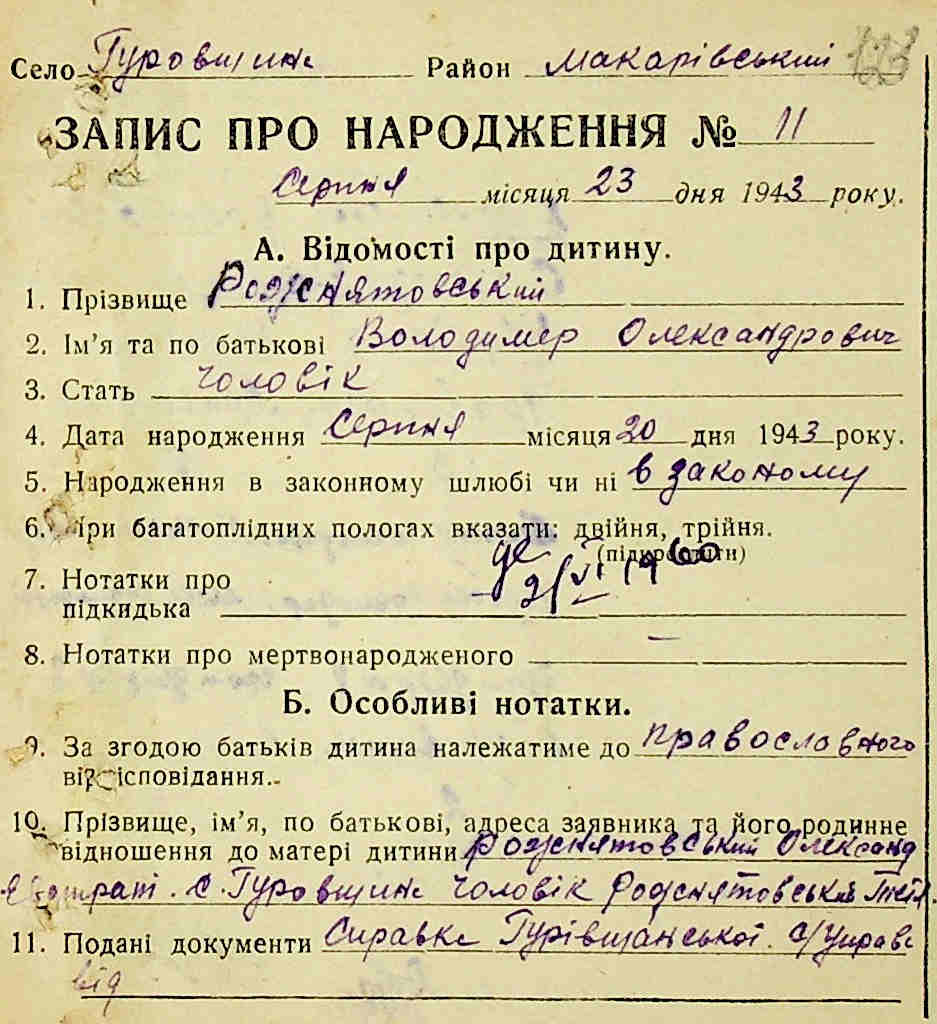 Село Гуровщина Район Макарівський
ЗАПИС ПРО НАРОДЖЕННЯ № 11
Серпня місяця 23 дня 1943 року.
А. Відомості про дитину.
1. Прізвище Рожнятовський
2. Ім'я та по батькові Володимер Олександрович
3. Стать чоловік
4. Дата народження Серпня місяця 20 дня 1943 року.
5. Народження в законному шлюбі чи ні в законому
6. При багатоплідних пологах вказати: двійня, трійня.
(підкреслити)
7. Нотатки про
2/VI 1960
підкидька
8. Нотатки про мертвонародженого —
Б. Особливі нотатки.
9. За згодою батьків дитина належатиме до православного
віросісповідання.
10. Прізвище, ім'я, по батькові, адреса заявника та його родинне
відношення до матері дитини Рожнятовський Олександ
с. Гуровщина чоловік Рожнятовський
11. Подані документи Справка Гурівщанської с/Управ
від